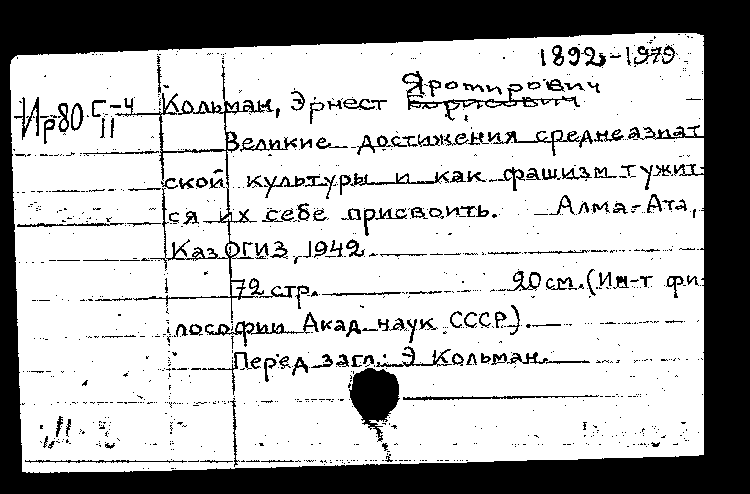 1892-1979
Яромирович
Ир80 Г-4 Кольман, Эрнест Борисович
II
Великие достижения среднеазиат
ской культуры и как фашизм тужит-
ся их себе присвоить. Алма-Ата,
КазОГИЗ, 1942
72 стр. 20см. (Ин-т фи-
лософии Акад. наук СССР).
Перед загл.: Э Кольман.